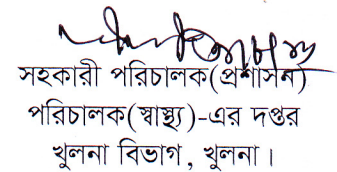 সহকারী পরিচালক(প্রশাসন)
পরিচালক(স্বাস্থ্য)-এর দপ্তর
খুলনা বিভাগ, খুলনা।